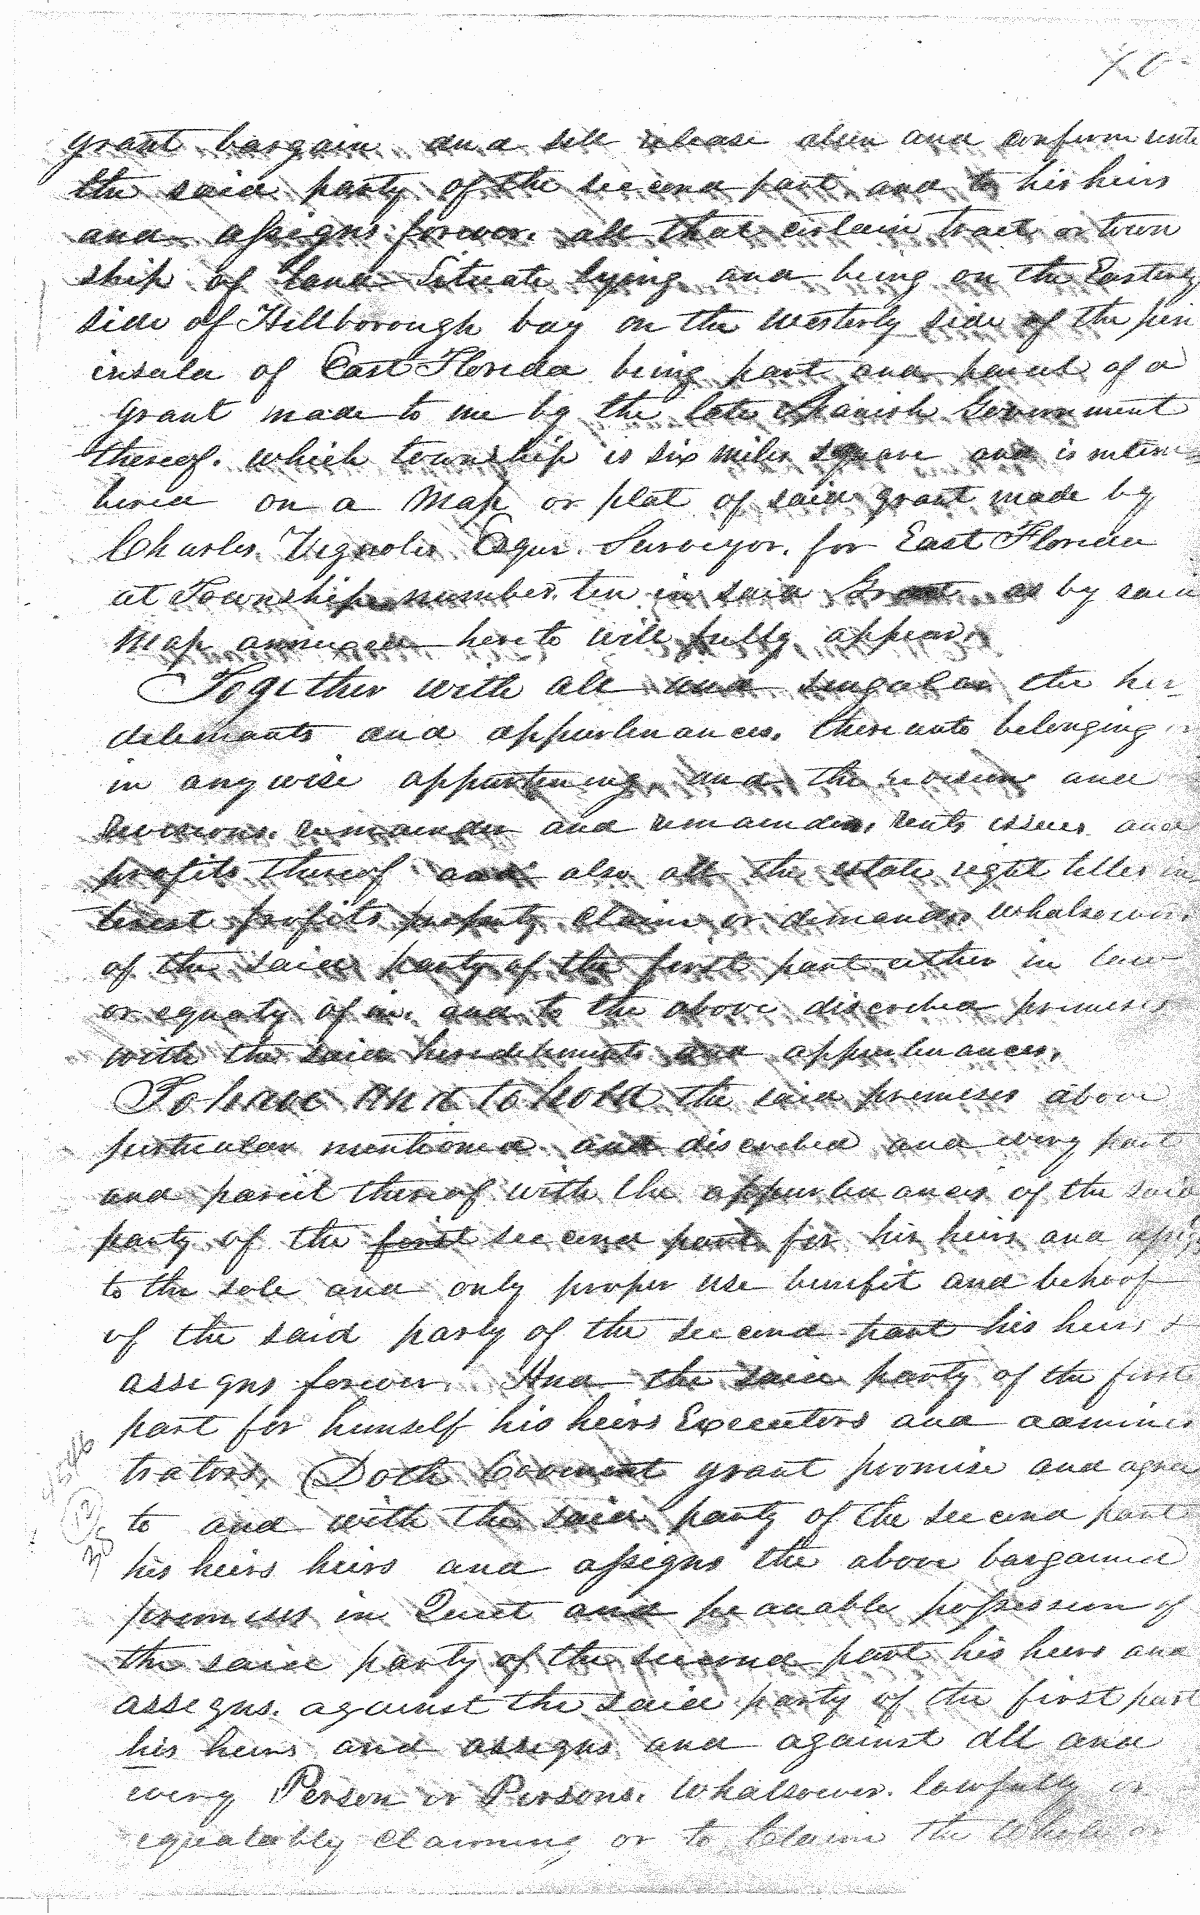 70
grant bargain and sell release alien and confirm unto
the said party of the second part. and to his heirs
and assigns forever. all that certain tract or town
ship of land Situate lying and being on the Easterly
side of Hillborough bay on the Westerly side of the pen
insula of East Florida being part and parcel of a
Grant made to me by the late Spanish Government
thereof. which township is six miles square and is
bered on a Map or plat of said grant made by
Charles. Vignoles Esqur. Surveyor. for East Florida
at Township number. ten in said Grant as by said
Map annexed hereto will fully appear.
Together with all and singular the her-
detemants and appurtenances. thereunto belonging
in anywise appurtening. and the revision and
revisions. remainder and remainders. rents issues and
profits thereof and also all the estate right titles in
terest profits property claim or demands Whatsoever.
of the said party of the first part either in law
or equaty of in. and to the above discrebed premises
with the said heredetements and appurtenances.
To have And to hold the said premises above
perticular mentioned and discrebed and every part
and parcel thereof with the appurtenances of the said
party of the first second part for his heirs and
to the sole and only proper use benifit and behoof
of the said party of the second part his heirs &
assigns forever. And the said party of the first
part for himself his heirs Executors and adminis
trators. Doth Covenent grant promise and agree
to and with the said party of the second part
his heirs heirs and assigns the above bargained
premises in Quiet and peanable possession of
the said party of the second part his heirs and
assigns. against the said party of the first part
his heirs and assigns and against all and
every Person or Persons. Whatsoever. lawfully or
equatably claiming or to Claim the Whole or